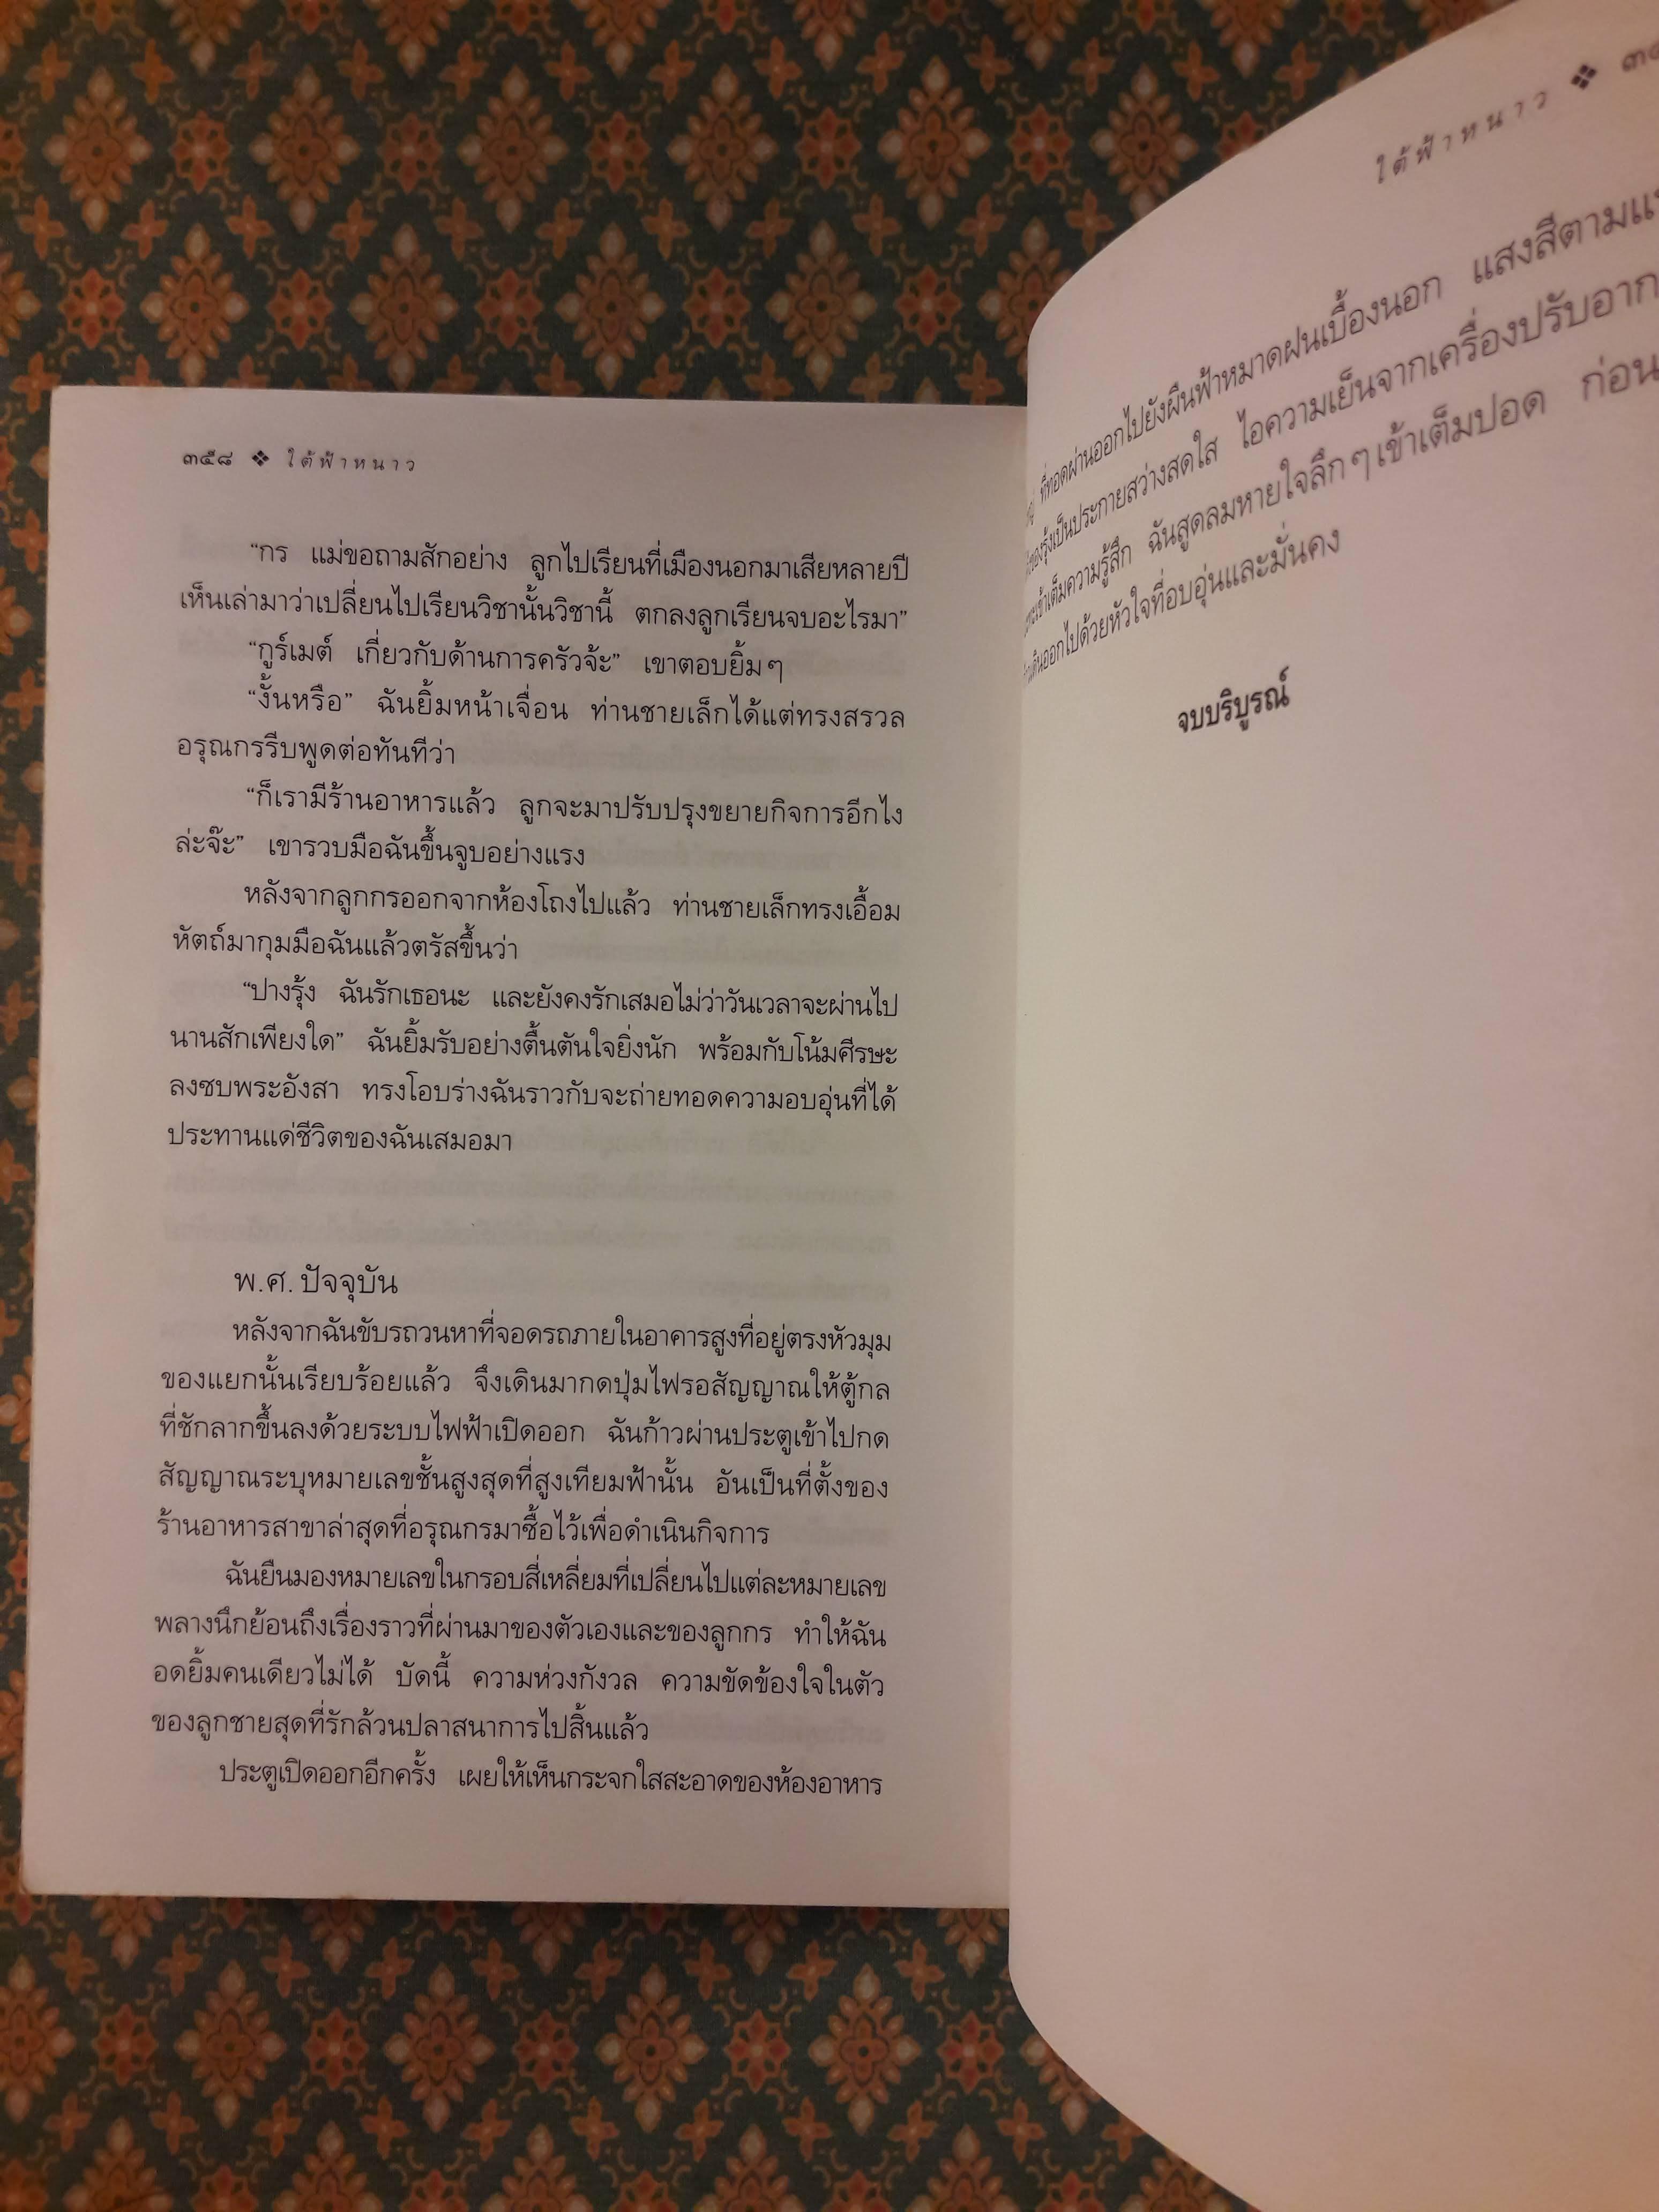 ๓๕๘ ❖ ใต้ฟ้าหนาว
“กร แม่ขอถามสักอย่าง ลูกไปเรียนที่เมืองนอกมาเสียหลายปี
เห็นเล่ามาว่าเปลี่ยนไปเรียนวิชานั้นวิชานี้ ตกลงลูกเรียนจบอะไรมา”
“กูร์เมต์ เกี่ยวกับด้านการครัวจ้ะ” เขาตอบยิ้มๆ
“งั้นหรือ” ฉันยิ้มหน้าเจื่อน ท่านชายเล็กได้แต่ทรงสรวล
อรุณกรรีบพูดต่อทันทีว่า
“ก็เรามีร้านอาหารแล้ว ลูกจะมาปรับปรุงขยายกิจการอีกไง
ล่ะจ๊ะ” เขารวบมือฉันขึ้นจูบอย่างแรง
หลังจากลูกกรออกจากห้องโถงไปแล้ว ท่านชายเล็กทรงเอื้อม
หัตถ์มากุมมือฉันแล้วตรัสขึ้นว่า
“ปางรุ้ง ฉันรักเธอนะ และยังคงรักเสมอไม่ว่าวันเวลาจะผ่านไป
นานสักเพียงใด” ฉันยิ้มรับอย่างตื้นตันใจยิ่งนัก พร้อมกับโน้มศีรษะ
ลงซบพระอังสา ทรงโอบร่างฉันราวกับจะถ่ายทอดความอบอุ่นที่ได้
ประทานแด่ชีวิตของฉันเสมอมา
พ.ศ. ปัจจุบัน
หลังจากฉันขับรถวนหาที่จอดรถภายในอาคารสูงที่อยู่ตรงหัวมุม
ของแยกนั้นเรียบร้อยแล้ว จึงเดินมากดปุ่มไฟรอสัญญาณให้ตู้กล
ที่ชักลากขึ้นลงด้วยระบบไฟฟ้าเปิดออก ฉันก้าวผ่านประตูเข้าไปกด
สัญญาณระบุหมายเลขชั้นสูงสุดที่สูงเทียมฟ้านั้น อันเป็นที่ตั้งของ
ร้านอาหารสาขาล่าสุดที่อรุณกรมาซื้อไว้เพื่อดำเนินกิจการ
ฉันยืนมองหมายเลขในกรอบสี่เหลี่ยมที่เปลี่ยนไปแต่ละหมายเลข
พลางนึกย้อนถึงเรื่องราวที่ผ่านมาของตัวเองและของลูกกร ทำให้ฉัน
อดยิ้มคนเดียวไม่ได้ บัดนี้ ความห่วงกังวล ความขัดข้องใจในตัว
ของลูกชายสุดที่รักล้วนปลาสนาการไปสิ้นแล้ว
ประตูเปิดออกอีกครั้ง เผยให้เห็นกระจกใสสะอาดของห้องอาหาร
ใต้ฟ้าหนาว ❖
ที่ทอดผ่านออกไปยังผืนฟ้าหมาดฝนเบื้องนอก แสงสีตาม
ของรุ้งเป็นประกายสว่างสดใส ไอความเย็นจากเครื่องปรับ
เข้าเต็มความรู้สึก ฉันสูดลมหายใจลึกๆ เข้าเต็มปอด ก่อน
เดินออกไปด้วยหัวใจที่อบอุ่นและมั่นคง
จบบริบูรณ์